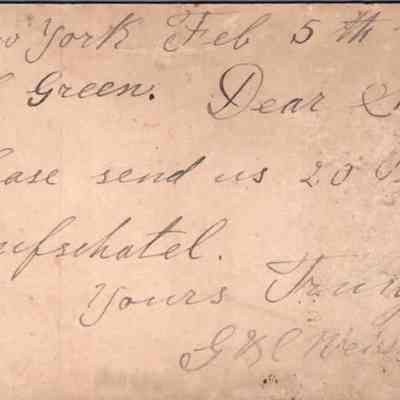 York Feb 5th
Green. Dear
ase send us 20
ufschatel.
Yours Truly
G